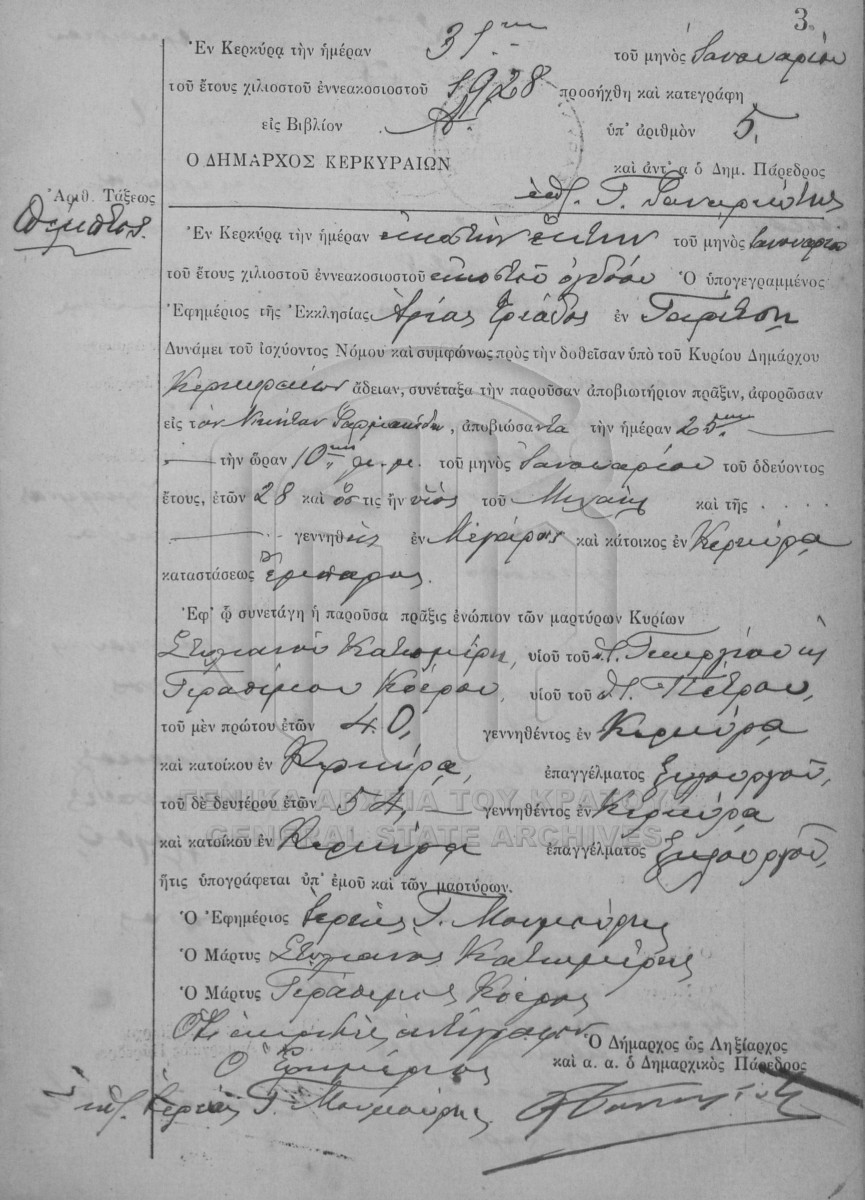 3.
Ἐν Κερκύρᾳ τὴν ἡμέραν 31ην τοῦ μηνὸς Ἰανουαρίου
τοῦ ἔτους χιλιοστοῦ ἐννεακοσιοστοῦ 1928 προσήχθη καὶ κατεγράφη
εἰς Βιβλίον Α. ὑπ' ἀριθμὸν 5.
Ο ΔΗΜΑΡΧΟΣ ΚΕΡΚΥΡΑΙΩΝ καὶ ἀντ' α ὁ Δημ. Πάρεδρος
Ἀριθ. Τάξεως
Πέμπτος.
Ἐν Κερκύρᾳ τὴν ἡμέραν εἰκοστὴν ἕκτην τοῦ μηνὸς Ἰανουαρίου
τοῦ ἔτους χιλιοστοῦ ἐννεακοσιοστοῦ εἰκοστοῦ ὀγδόου Ὁ ὑπογεγραμμένος
Ἐφημέριος τῆς Ἐκκλησίας Ἁγίας Τριάδος ἐν Γαρίτσῃ
Δυνάμει τοῦ ἰσχύοντος Νόμου καὶ συμφώνως πρὸς τὴν δοθεῖσαν ὑπὸ τοῦ Κυρίου Δημάρχου
Κερκυραίων ἄδειαν, συνέταξα τὴν παροῦσαν ἀποβιωτήριον πρᾶξιν, ἀφορῶσαν
εἰς τὸν Νικήταν , ἀποβιώσαντα τὴν ἡμέραν 25ην
τὴν ὥραν 10ην μ.μ. τοῦ μηνὸς Ἰανουαρίου τοῦ ὁδεύοντος
ἔτους, ἐτῶν 28 καὶ ὅστις ἦν υἱὸς τοῦ Μιχαὴλ καὶ τῆς . . . .
γεννηθεὶς ἐν Μεγάροις καὶ κάτοικος ἐν Κερκύρᾳ
καταστάσεως
Ἐφ' ᾧ συνετάγη ἡ παροῦσα πρᾶξις ἐνώπιον τῶν μαρτύρων Κυρίων
Στυλιανοῦ Κατωμέρη, υἱοῦ τοῦ Γεωργίου κ
Γερασίμου Κόερου, υἱοῦ τοῦ Πέτρου,
τοῦ μὲν πρώτου ἐτῶν 40, γεννηθέντος ἐν Κερκύρᾳ
καὶ κατοίκου ἐν Κερκύρᾳ, ἐπαγγέλματος ξυλουργοῦ,
τοῦ δὲ δευτέρου ἐτῶν 54, γεννηθέντος ἐν Κερκύρᾳ
ΓΕΝΙΚΑ ΑΡΧΕΙΑ ΤΟΥ ΚΡΑΤΟΥΣ
GENERAL STATE ARCHIVES
καὶ κατοίκου ἐν Κερκύρᾳ ἐπαγγέλματος ξυλουργοῦ,
ἥτις ὑπογράφεται ὑπ' ἐμοῦ καὶ τῶν μαρτύρων.
Ὁ Ἐφημέριος Ἱερεὺς Γ. Μουμούρης
Ὁ Μάρτυς Στυλιανος Κατωμέρης
Ὁ Μάρτυς Γεράσιμος Κόερος
Ὅτι ἀκριβὲς ἀντίγραφον
Ὁ Δήμαρχος ὡς Ληξίαρχος
Ὁ Ἐφημέριος
καὶ α. α. ὁ Δημαρχικὸς Πάρεδρος
Ἱερεὺς Γ. Μουμούρης